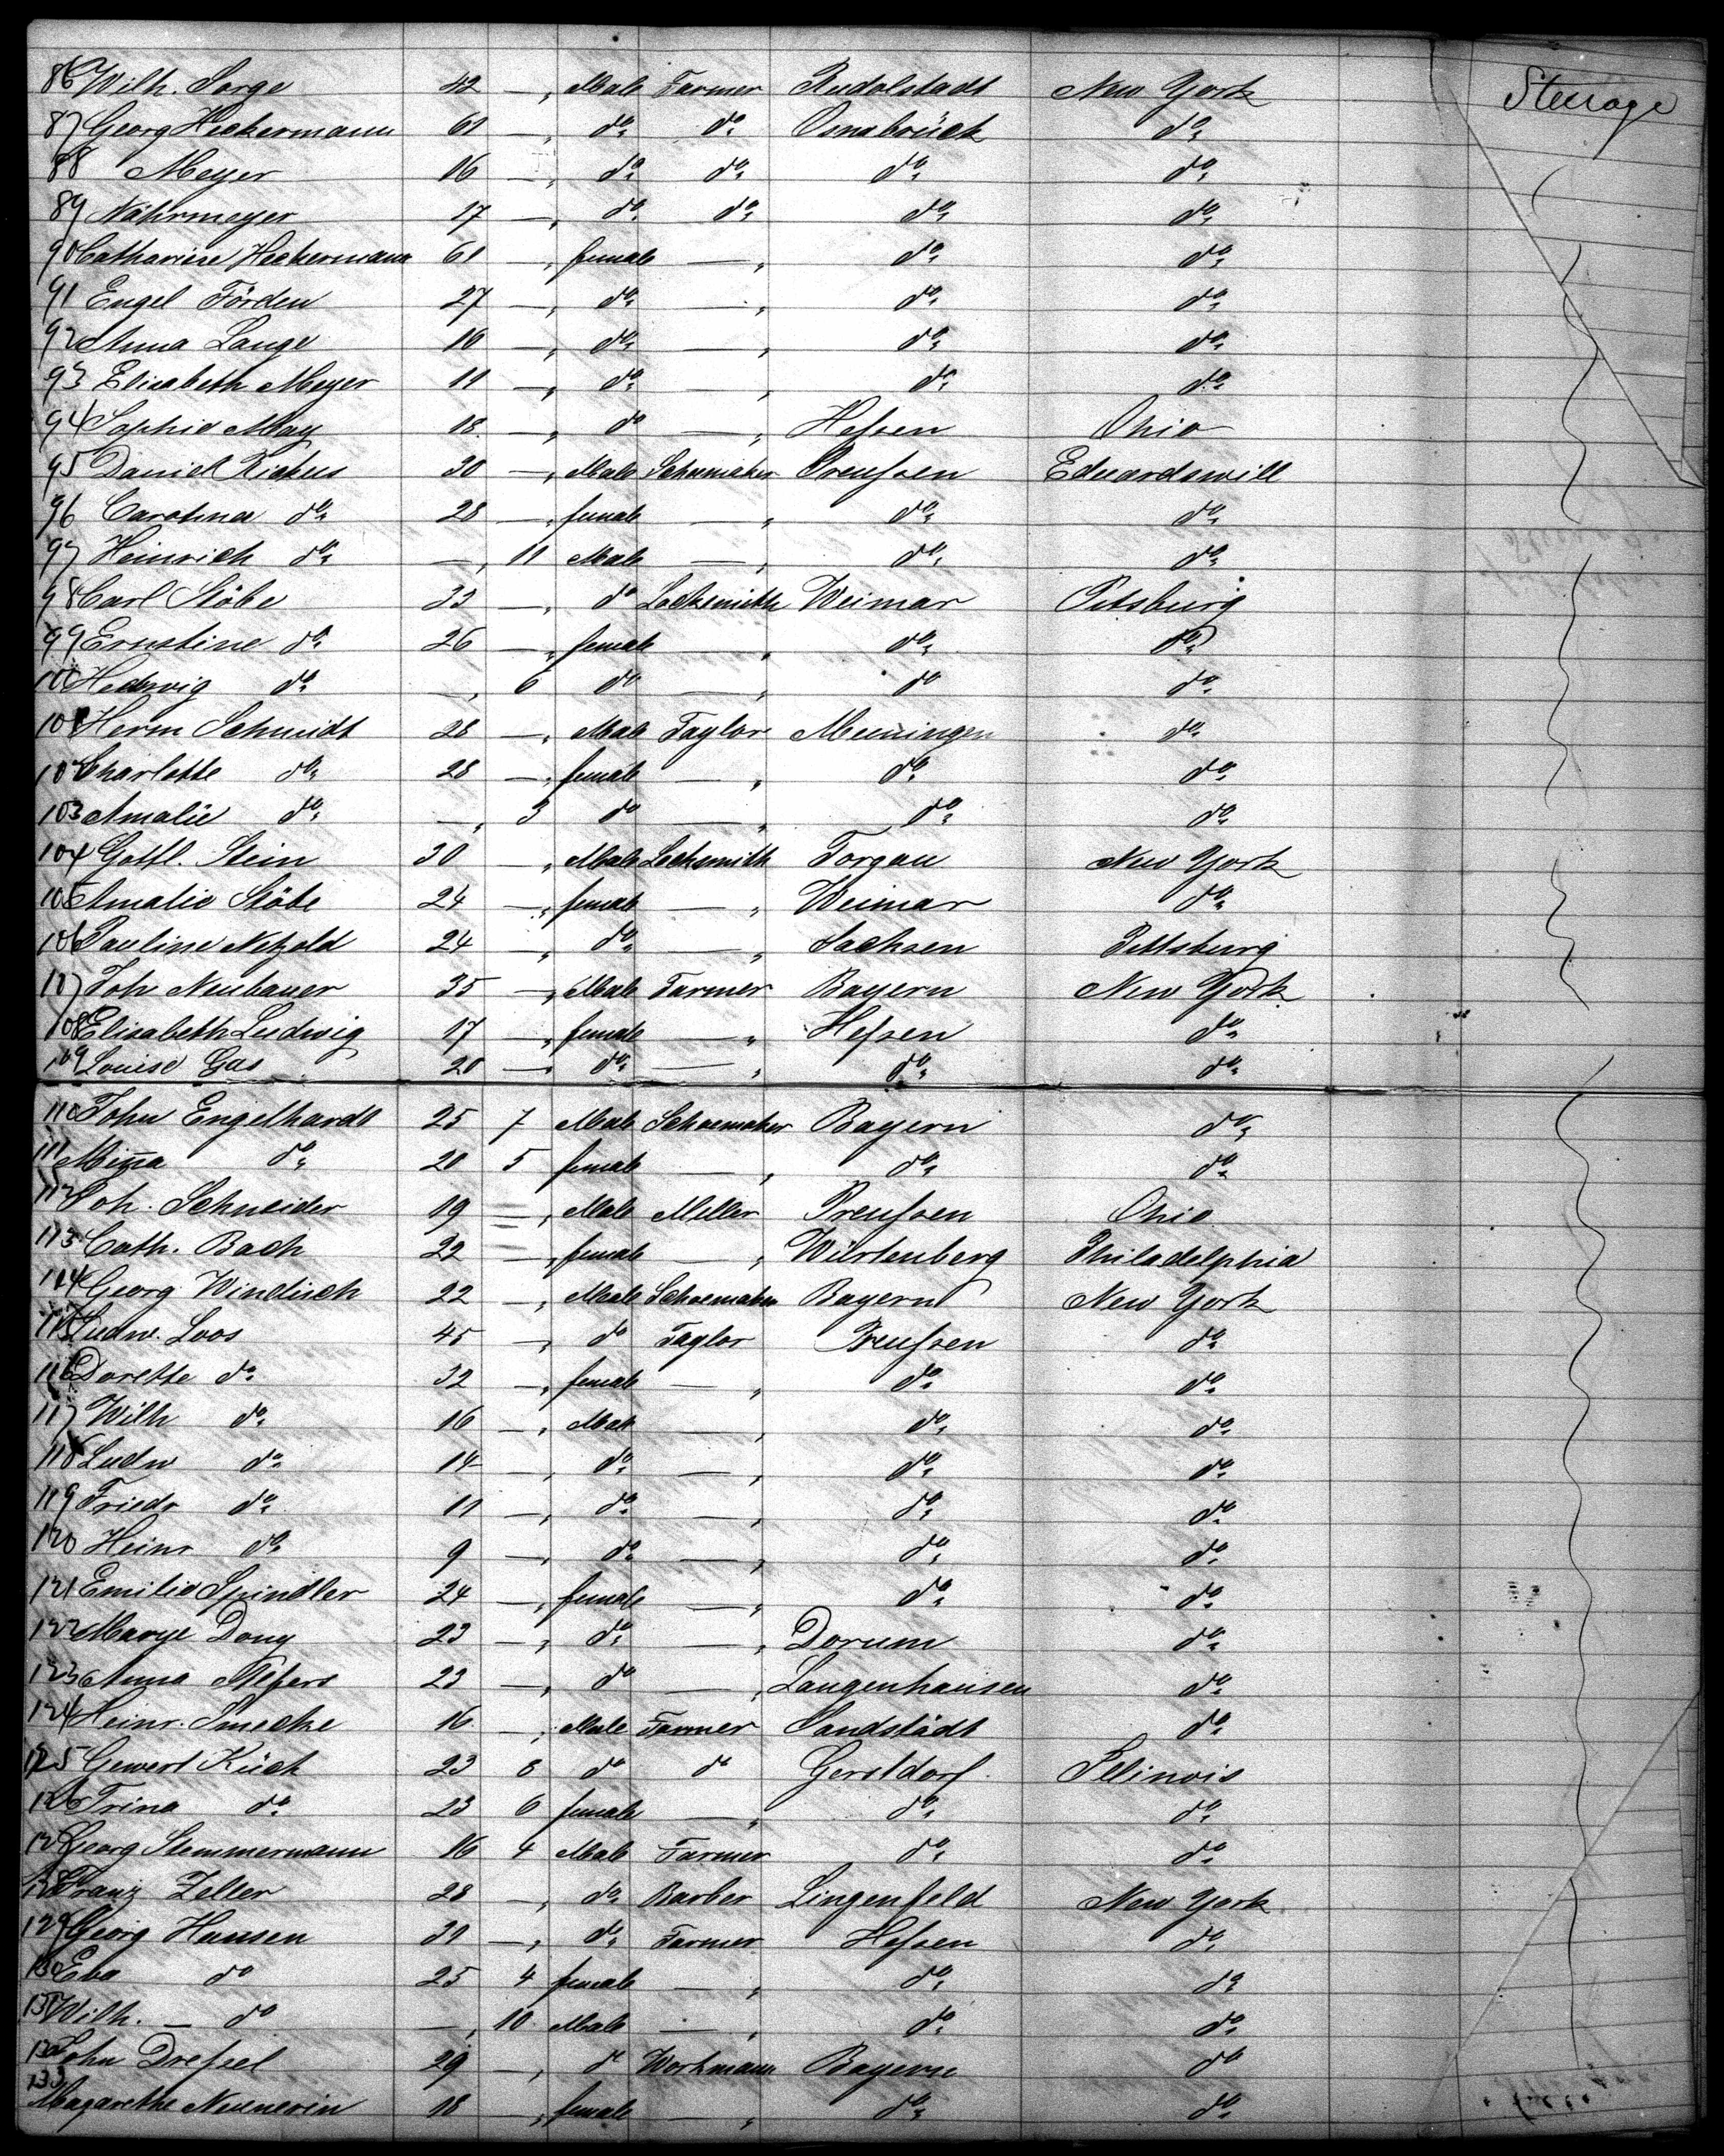 86 Wilh. Sorge 42 — " Male Farmer Rudolstadt New York Steerage
87 Georg Heckermann 61 — " do do Osnabrück do
88 Meyer 16 — " do do do do
89 Nährmeyer 17 — " do do do do
90 Catharine Heckermann 61 — " female — " do do
91 Engel Förden 27 — " do — " do do
92 Anna Lange 10 — " do — " do do
93 Elisabeth Meyer 11 — " do — " do do
94 Sophie May 18 — " do — " Hessen Ohio
95 Daniel 30 — " Male Schumaker Preussen Eduardswill
96 Carolina do 28 — " female — " do do
97 Heinrich do — " 11 Male — " do do
98 Carl Stöbe 33 — " do Locksmith Weimar Pitsburg
99 Ernstine do 26 — " female — " do do
100 Hedwig do — " 6 do — " do do
101 Herm Schmidt 28 — " Male Taylor Meiningen do
102 Charlotte do 28 — " female — " do do
103 Amalie do — " 3 do — " do do
104 Gottl. Stein 30 — " Male Locksmith Torgau New York
105 Amalie Stöbe 24 — " female — " Weimar do
106 Pauline Netzold 24 — " do — " Sachsen Pittsburg
107 Joh Neubauer 35 — " Male Farmer Bayern New York
108 Elisabeth Ludwig 17 — " female — " Hessen do
109 Louise Gas 20 — " do — " do do
110 John Engelhardt 25 7 Male Schoemaker Bayern do
111 Minna do 20 5 female — " do do
112 Joh. Schneider 19 — " Male Meller Preussen Ohio
113 Cath. Bach 22 — " female — " Würtenberg Philadelphia
114 Georg Windisch 22 — " Male Schoemaker Bayern New York
115 Ludw. Loos 45 — " do Taylor Preussen do
116 Dorette do 32 — " female — " do do
117 Wilh do 16 — " Male — " do do
118 Ludw do 14 — " do — " do do
119 Friedr do 11 — " do — " do do
120 Heinr do 9 — " do — " do do
121 Emilie Spindler 24 — " female — " do do
122 Marye Dony 23 — " do — " Dorum do
123 Anna 23 — " do — " Langenhausen do
124 Heinr. 16 — " Male Farmer Sandstädt do
125 Gewert Kück 23 8 do do Gerstdorf Illinois
126 Trina do 23 6 female — " do do
127 Georg Stemmermann 16 4 Male Farmer do do
128 Franz Zeller 28 — " do Barber Lingenfeld New York
129 Georg Hansen 31 — " do Farmer Hessen do
130 Eva do 25 4 female — " do do
131 Wilh. — do — " 10 Male — " do do
132 John Dressel 29 — " do Workmann Bayern do
133 Magarethe Neunerin 18 — " female — " do do